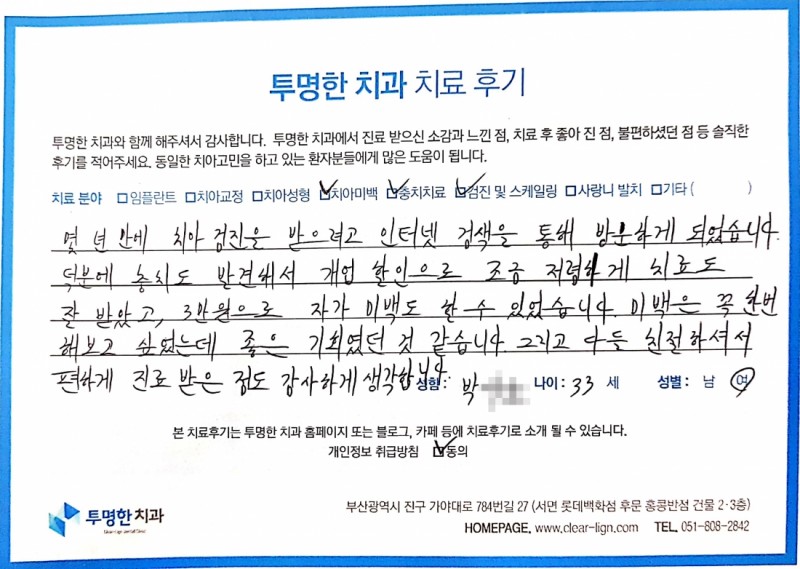 투명한 치과 치료 후기
투명한 치과와 함께 해주셔서 감사합니다. 투명한 치과에서 진료 받으신 소감과 느낀 점, 치료 후 좋아 진 점, 불편하셨던 점 등 솔직한
후기를 적어주세요. 동일한 치아고민을 하고 있는 환자분들에게 많은 도움이 됩니다.
치료 분야 □임플란트 □치아교정 □치아성형 ☑치아미백 ☑충치치료 ☑검진 및 스케일링 □사랑니 발치 □기타 ( )
몇 년 만에 치아 검진을 받으려고 인터넷 검색을 통해 방문하게 되었습니다.
덕분에 충치도 발견해서 개업 할인으로 조금 저렴하게 치료도
잘 받았고, 3만원으로 자가 미백도 할 수 있었습니다. 미백은 꼭 한번
해보고 싶었는데 좋은 기회였던 것 같습니다. 그리고 다들 친절하셔서
편하게 진료 받은 점도 감사하게 생각합니다.
성함 : 박 나이 : 33 세 성별 : 남 여
본 치료후기는 투명한 치과 홈페이지 또는 블로그, 카페 등에 치료후기로 소개 될 수 있습니다.
개인정보 취급방침 ☑동의
투명한 치과
부산광역시 진구 가야대로 784번길 27 (서면 롯데백학점 후문 홍콩반점 건물 2·3층)
HOMEPAGE. www.clear-lign.com TEL. 051-808-2842